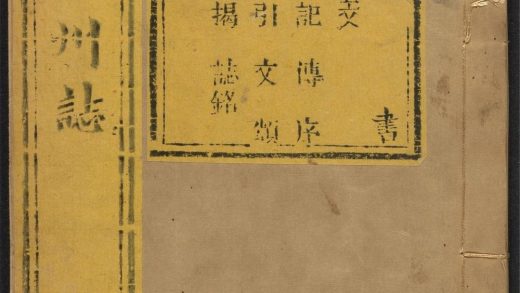 書
文
記傳序
引文頌
揭誌銘
州誌